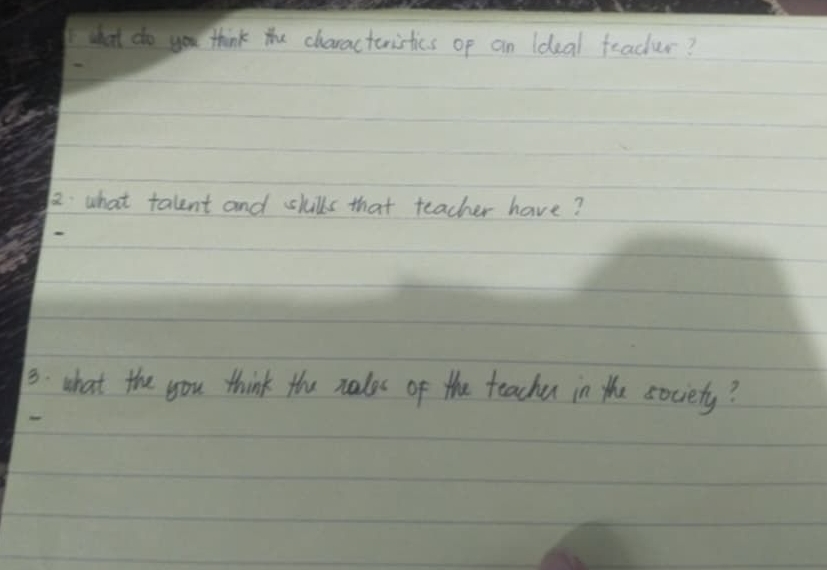 1. what do you think the characteristics of an Ideal teacher?
-
2. what talent and skills that teacher have?
-
3. what the you think the roles of the teacher in the society?
-